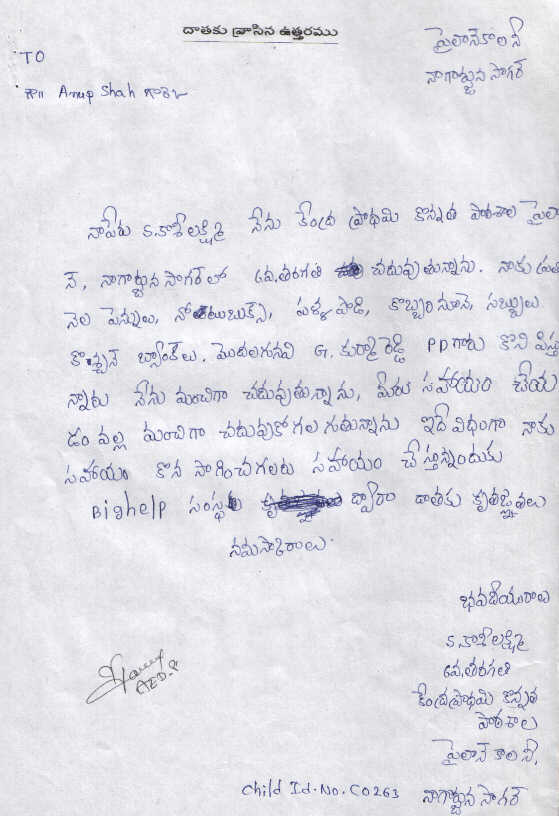 దాతకు వ్రాసిన ఉత్తరము
పైలాన్ కాలనీ
నాగార్జున సాగర్
TO
గౌ|| Anup Shah గారికి
నాపేరు S.కాశీలక్ష్మి నేను కేంద్ర ప్రాథమి కొన్నత పాఠశాల పైలా
న్, నాగార్జున సాగర్ లో 6వ.తరగతి చదువుతున్నాను. నాకు ప్రతి
నెల పెన్నులు, నోటుబుక్స్, పళ్ళ పొడి, కొబ్బరి నూనె, సబ్బులు.
కొచ్చన్ బ్యాంక్ లు. మొదలగునవి G. కుర్మా రెడ్డి PD గారు కొని పిస్తు
న్నారు నేను మంచిగా చదువుతున్నాను, మీరు సహాయం చేయ
డం వల్ల మంచిగా చదువుకో గలుగుతున్నాను ఇదే విధంగా నాకు
సహాయం కొన సాగించగలరు సహాయం చేస్తున్నందుకు
Bighelp సంస్థ ద్వారా దాతకు కృతజ్ఞతలు
నమస్కారాలు.
భవదీయురాలు
S.కాశీలక్ష్మి
6వ.తరగతి
కేంద్రప్రాథమి కొన్నత
పాఠశాల
పైలాన్ కాలనీ.
Child Id.No.C0263 నాగార్జున సాగర్